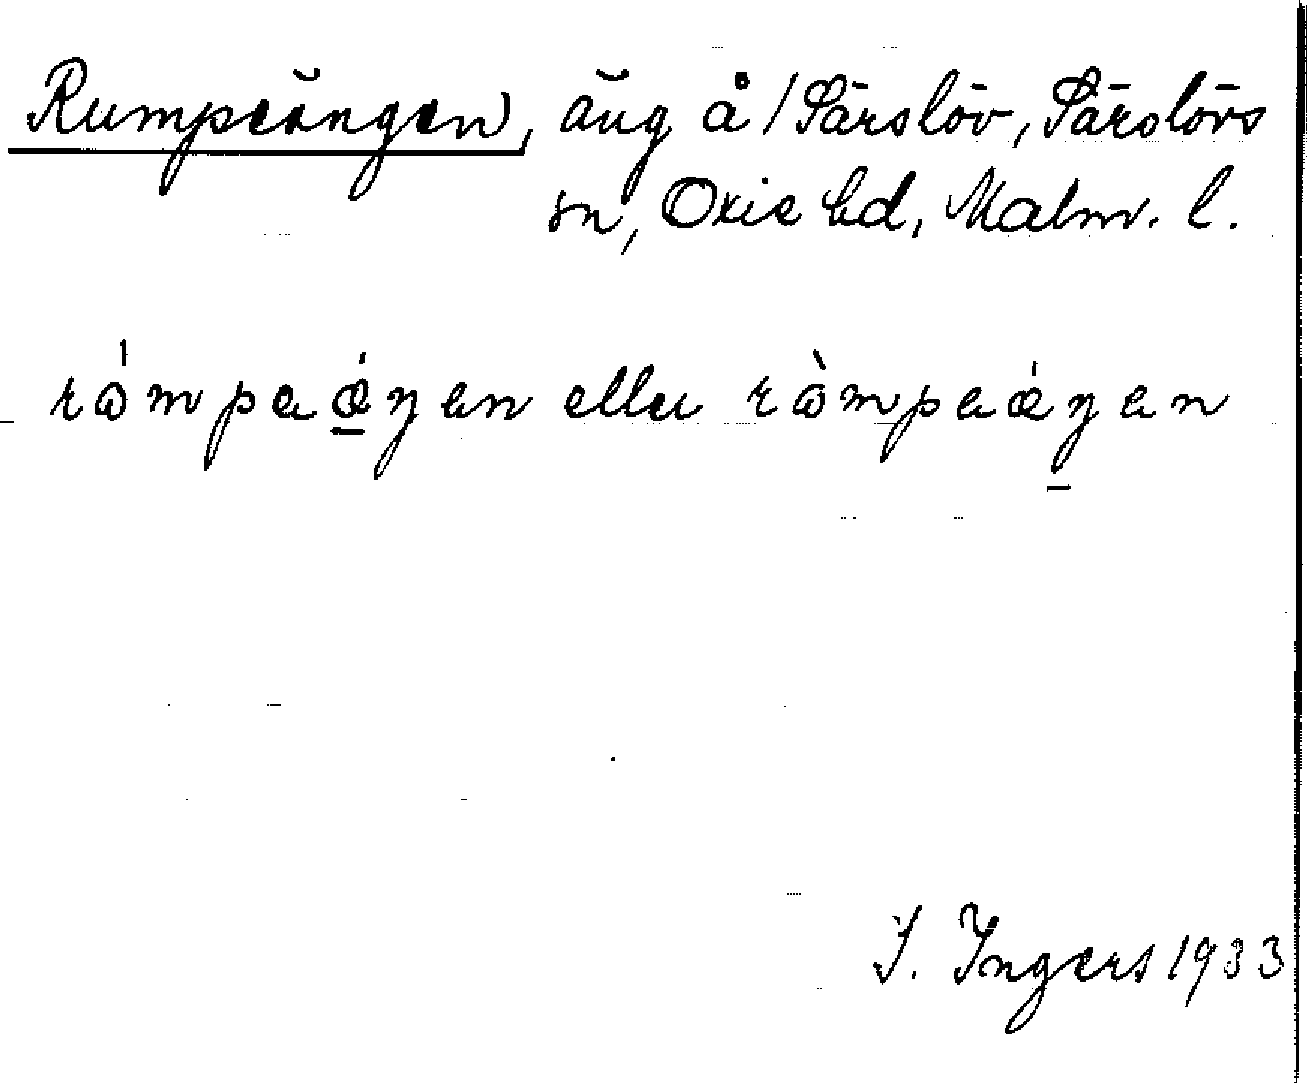 Rumpeängen, äng å/Särslöv, Särslövs
sn, Oxie hd, Malm. l.
rɷ́mpeǽŋen eller rɷ̀mpeǽŋen
I. Ingers 1933